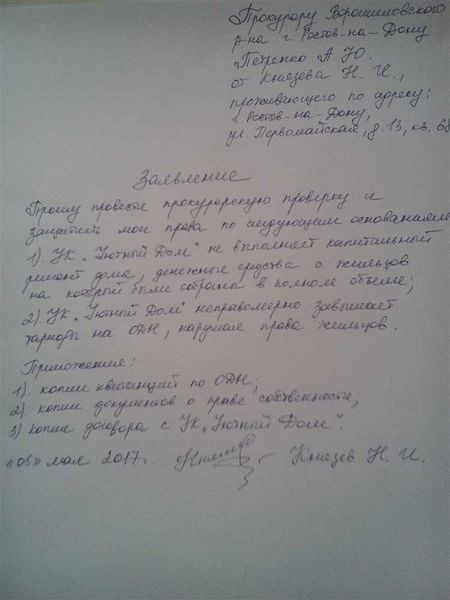 Прокурору Ворошиловского
р-на г. Ростов-на-Дону
Петренко А. Ю.
от Князева Н. И.,
проживающего по адресу:
г. Ростов-на-Дону,
ул. Первомайская, д. 13, кв. 68
Заявление
Прошу провести прокурорскую проверку и
защитить мои права по следующим основаниям
1). УК „Уютный Дом" не выполняет капитальный
ремонт дома, денежные средства с жильцов
на который были собраны в полном объеме;
2). УК „Уютный Дом" неправомерно завышает
тарифы на ОДН, нарушая права жильцов.
Приложения:
1). копии квитанций по ОДН;
2). копии документов о праве собственности;
3) копия договора с УК „Уютный Дом".
«05» мая 2017г. Князев Н. И.